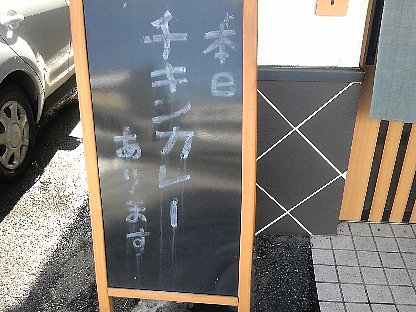 本日
チキンカレー
あります